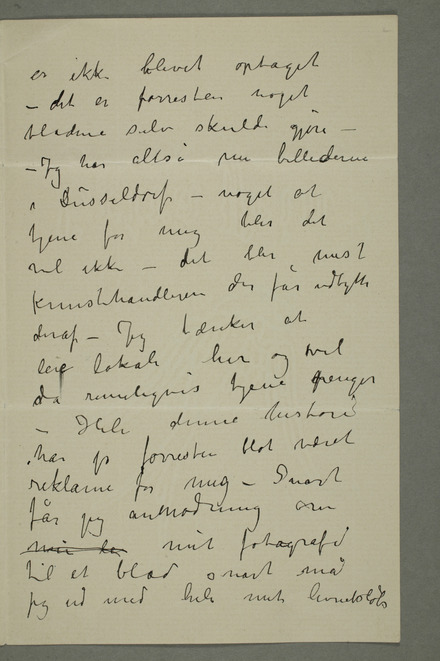 er ikke blevet optaget
– det er forresten noget
bladene selv skulde gjøre –
– Jeg har altså nu billederne
i Düsseldorf – noget at
tjene for mig blir det
vel ikke – det blir mest
Kunsthandleren der får udbytte
deraf – Jeg tænker at
leie lokale her og vil
da rimeligvis tjene penger
– Hele denne historie
har jo forresten blot været
reklame for mig – Snart
får jeg anmodning om
mit fotografi
til et blad snart må
jeg ud med hele mit levnetsløb